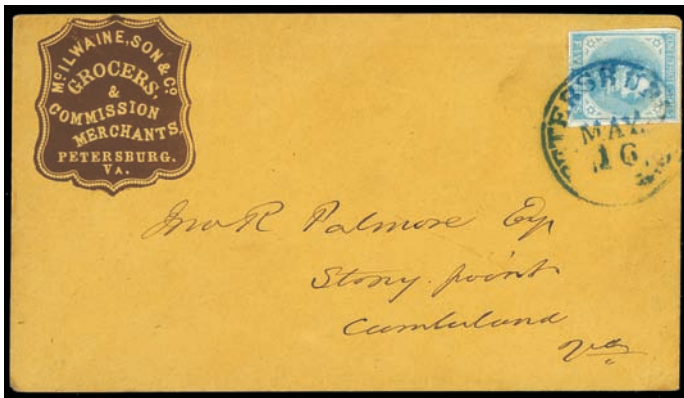 McILWAINE, SON & Co
GROCERS
&
COMMISSION
MERCHANTS,
PETERSBURG.
VA.
PETERSBURG
MAY
16
Jno R Palmore Esq
Stony point
Cumberland
Va